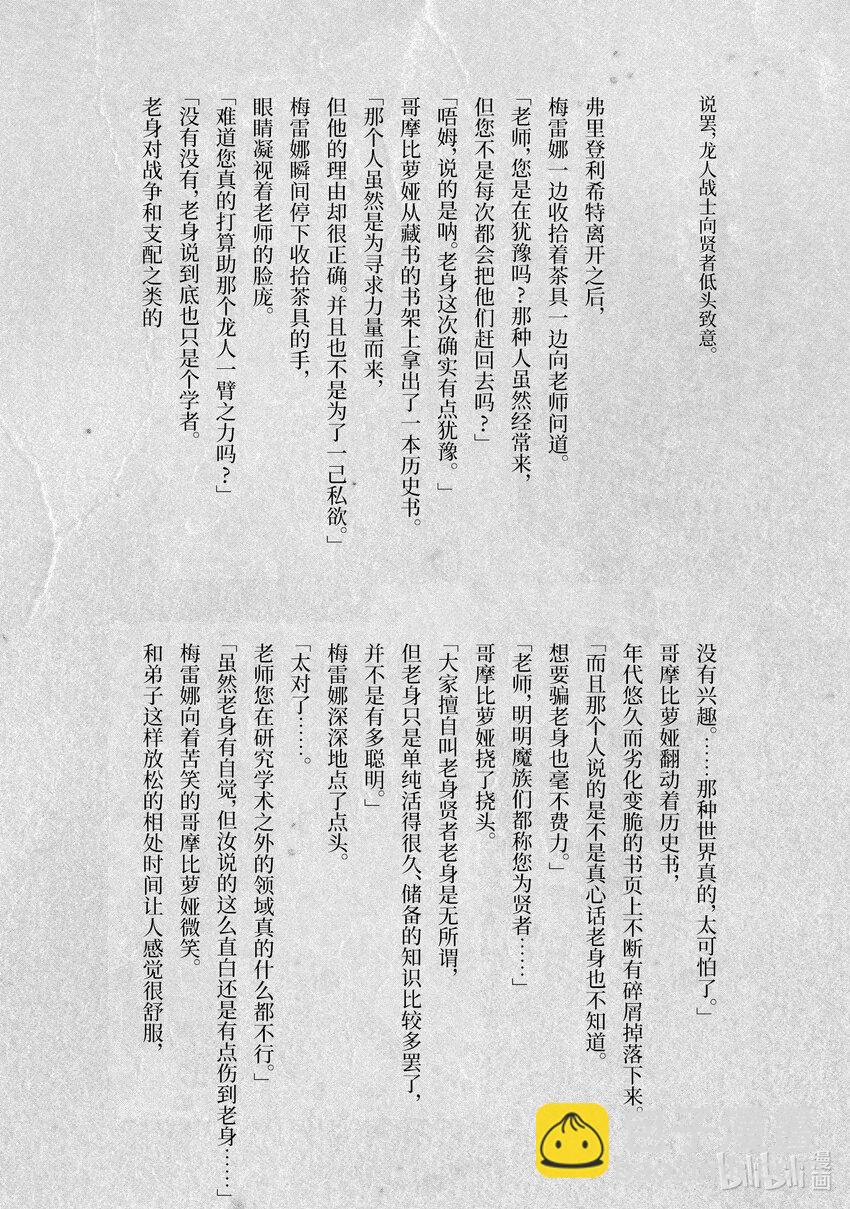 说罢,龙人战士向贤者低头致意。
弗里登利希特离开之后,
梅雷娜一边收拾着茶具一边向老师问道。
「老师,您是在犹豫吗?那种人虽然经常来,
但您不是每次都会把他们赶回去吗?」
「唔姆,说的是呐。老身这次确实有点犹豫。」
哥摩比萝娅从藏书的书架上拿出了一本历史书。
「那个人虽然是为寻求力量而来,
但他的理由却很正确。并且也不是为了一己私欲。」
梅雷娜瞬间停下收拾茶具的手,
眼睛凝视着老师的脸庞。
「难道您真的打算助那个龙人一臂之力吗?」
「没有没有,老身说到底也只是个学者。
老身对战争和支配之类的
没有兴趣。……那种世界真的,太可怕了。」
哥摩比萝娅翻动着历史书,
年代悠久而劣化变脆的书页上不断有碎屑掉落下来。
「而且那个人说的是不是真心话老身也不知道。
想要骗老身也毫不费力。」
「老师,明明魔族们都称您为贤者……」
哥摩比萝娅挠了挠头。
「大家擅自叫老身贤者老身是无所谓,
但老身只是单纯活得很久、储备的知识比较多罢了,
并不是有多聪明。」
梅雷娜深深地点了点头。
「太对了……。
老师您在研究学术之外的领域真的什么都不行。」
「虽然老身有自觉,但汝说的这么直白还是有点伤到老身……」
梅雷娜向着苦笑的哥摩比萝娅微笑。
和弟子这样放松的相处时间让人感觉很舒服,
bilibili 漫画